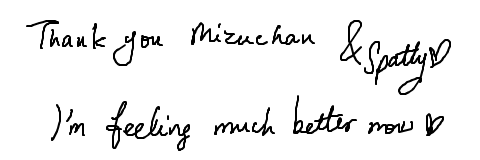 Thank you Mizuchan & Spatty♡
I'm feeling much better now ♡